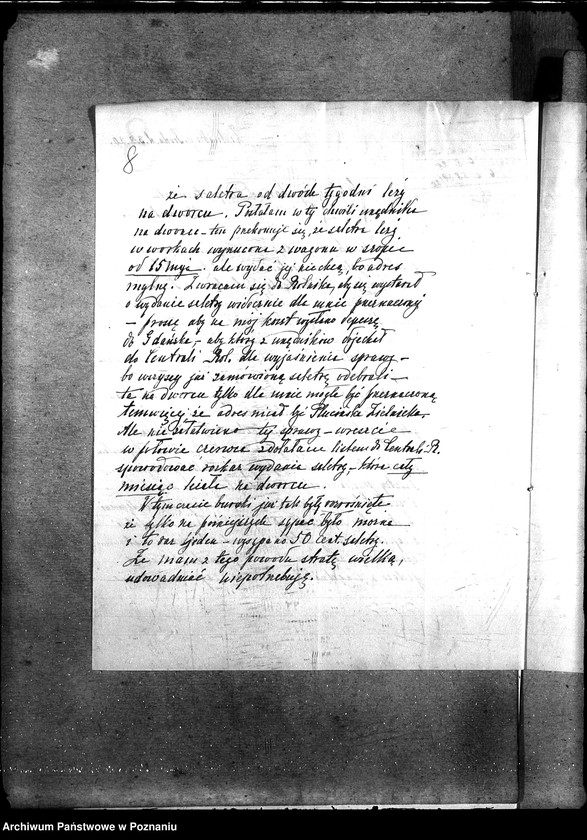 8
że saletra od dwóch tygodni leży
na dworcu. Pytałam w tej chwili urzędnika
na dworcu – ten przekonuje się, że saletra leży
w workach wyrzucona z wagonu w szopie
od 15 maja ale wydać jej nie chcą, bo adres
mylny. Zwracam się do Rolnika, aby się wystarał
o wydanie saletry widocznie dla mnie przeznaczonej
– proszę aby na mój koszt wysłano depeszę
do Gdańska, – aby który z urzędników dojechał
do Centrali Rol. dla wyjaśnienia sprawy –
bo wszyscy już zamówioną saletrę odebrali –
ta na dworcu tylko dla mnie mogła być przeznaczoną
że adres miał być
Ale nie załatwiono tej sprawy – wreszcie
w połowie czerwca zdołałam listem do Centrali R.
spowodować rozkaz wydania saletry, – która cały
miesiąc leżała na dworcu.
W tym czasie buraki już tak były rozrośnięte
że tylko na późniejszych sypać było można
i to raz jeden – wysypano 50 cent. saletry.
Że mam z tego powodu stratę wielką,
udowadniać niepotrzebuję.
Archiwum Państwowe w Poznaniu